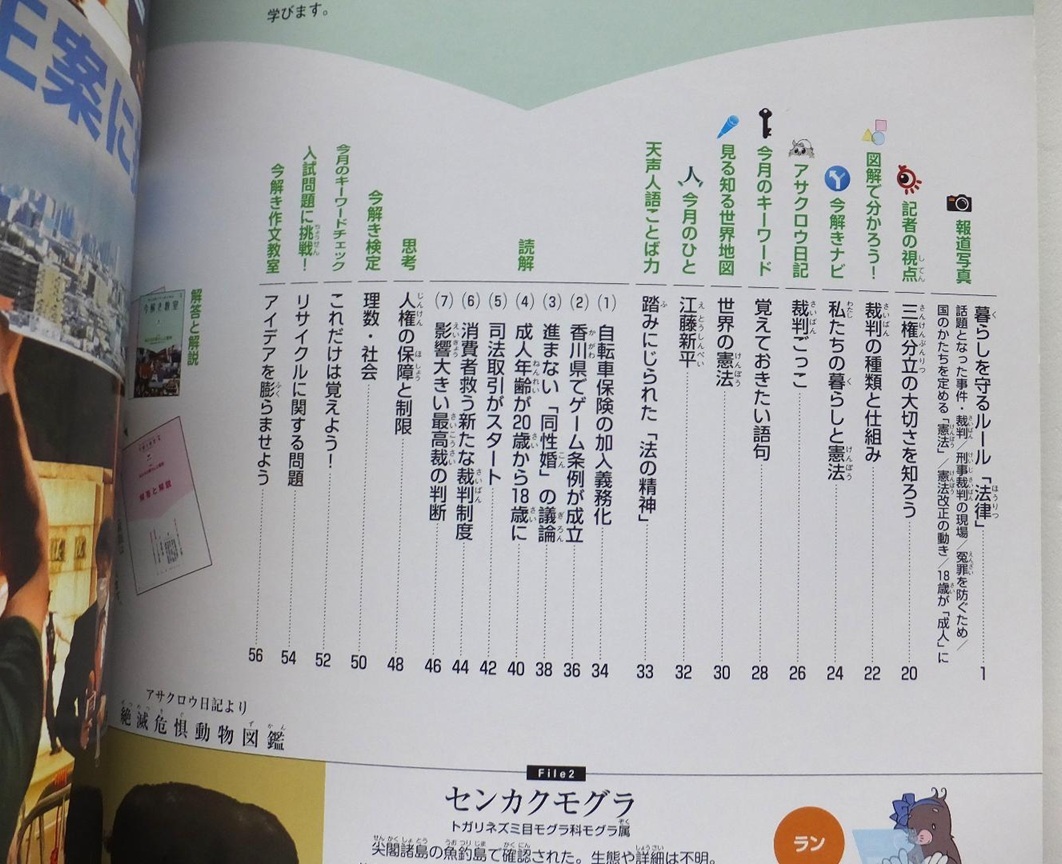 学びます。
E案に
報道写真
暮らしを守るルール「法律」 1
話題となった事件・裁判／刑事裁判の現場／冤罪を防ぐため／
国のかたちを定める「憲法」／憲法改正の動き／18歳が「成人」に
記者の視点
三権分立の大切さを知ろう 20
図解で分かろう！
裁判の種類と仕組み 22
今解きナビ
私たちの暮らしと憲法 24
アサクロウ日記
裁判ごっこ 26
今月のキーワード
覚えておきたい語句 28
見る知る世界地図
世界の憲法 30
人 今月のひと
江藤新平 32
天声人語ことば力
踏みにじられた「法の精神」 33
読解
(1) 自転車保険の加入義務化 34
(2) 香川県でゲーム条例が成立 36
(3) 進まない「同性婚」の議論 38
(4) 成人年齢が20歳から18歳に 40
(5) 司法取引がスタート 42
(6) 消費者救う新たな裁判制度 44
(7) 影響大きい最高裁の判断 46
思考
人権の保障と制限 48
今解き検定
理数・社会 50
今月のキーワードチェック
これだけは覚えよう！ 52
入試問題に挑戦！
リサイクルに関する問題 54
今解き作文教室
アイデアを膨らませよう 56
解答と解説
今解き教室
解答と解説
アサクロウ日記より
絶滅危惧動物図鑑
File2
センカクモグラ
トガリネズミ目モグラ科モグラ属
尖閣諸島の魚釣島で確認された。生態や詳細は不明。
ラン